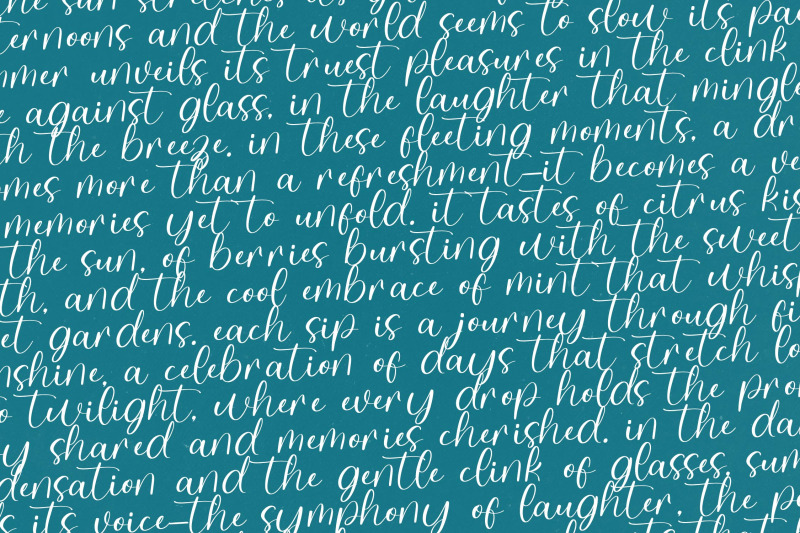 the sun stretches its
ernoons and the world seems to slow its pa
mer unveils its truest pleasures in the clink
e against glass, in the laughter that mingle
th the breeze. in these fleeting moments, a dr
omes more than a refreshment—it becomes a ve
memories yet to unfold. it tastes of citrus kis
the sun, of berries bursting with the sweet
th, and the cool embrace of mint that whisp
et gardens. each sip is a journey through fi
nshine, a celebration of days that stretch lo
o twilight, where every drop holds the pro
y shared and memories cherished. in the da
densation and the gentle clink of glasses, sum
s its voice—the symphony of laughter, the p